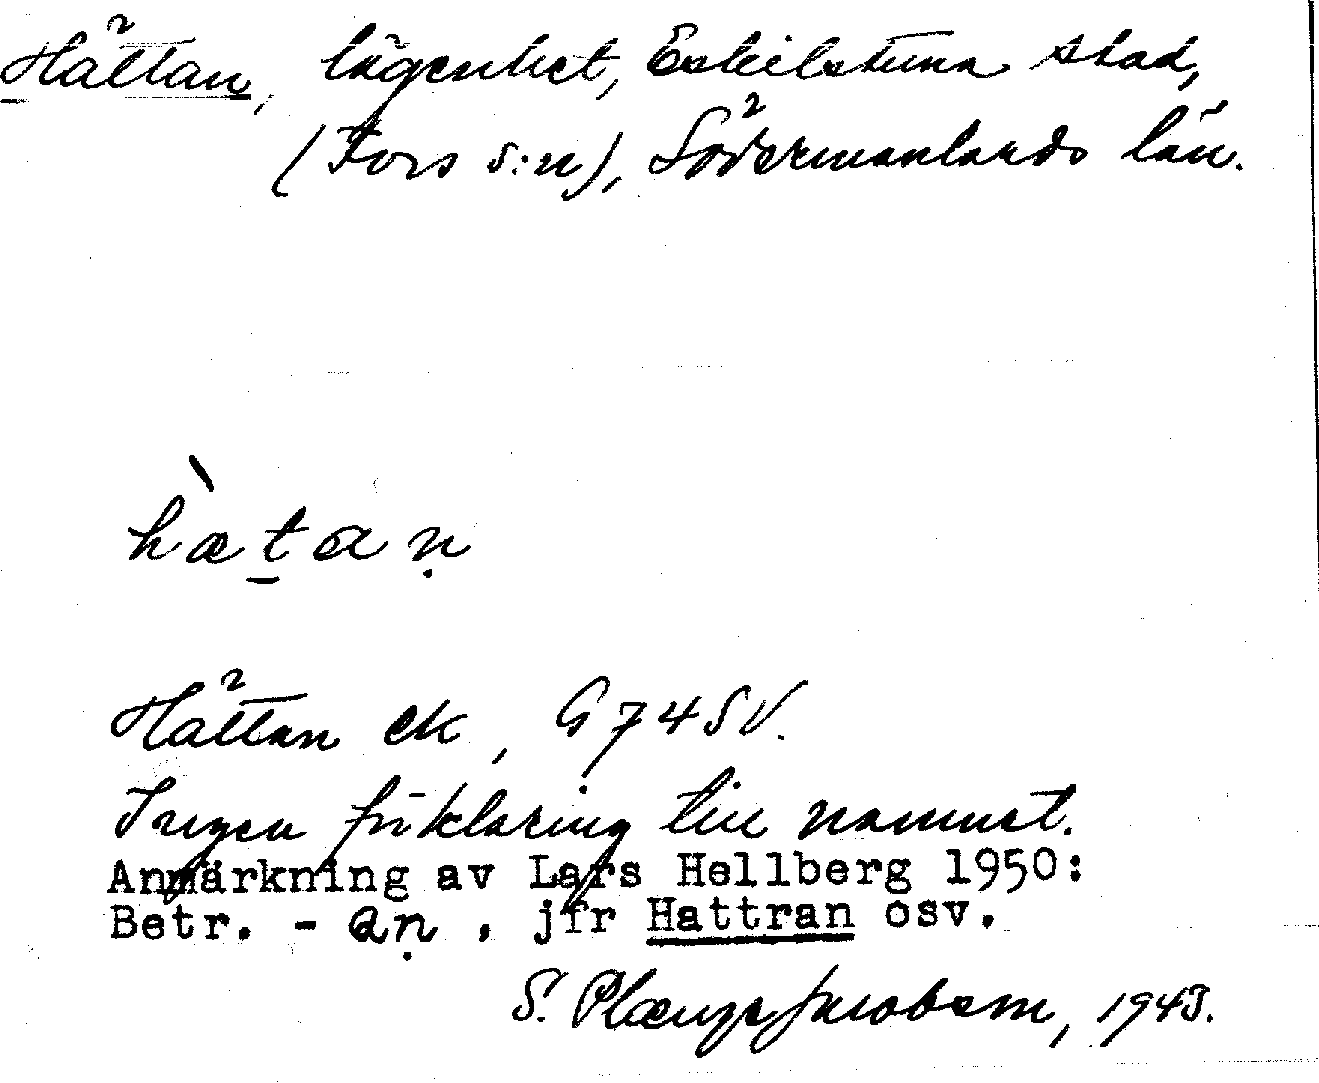 Hättan, lägenhet, Eskilstuna stad,
(Fors s:n), Södermanlands län.
hæ̀ṯaṇ
Hättan ek, G 74 SV.
Ingen förklaring till namnet.
Anmärkning av Lars Hellberg 1950:
Betr. - aṇ, jfr Hattran osv.
S. Plænge Jacobson, 1943.